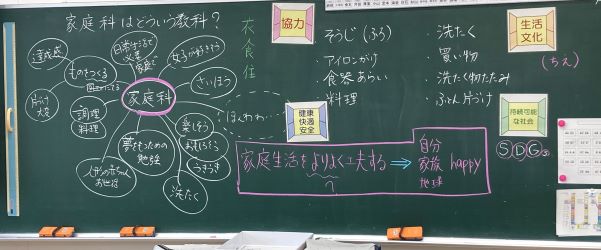 家庭科はどういう教科?
達成感
日常生活で
必要
家庭で
女子が好きそう
ものをつくる
さいほう
片づけ
大変
家庭科
調理
料理
楽しそう
夢をもつための
勉強
おせわ
洗たく
衣食住
ほんわわ…
協力
そうじ(ふろ)
・アイロンがけ
・食器あらい
・料理
・洗たく
・買い物
・洗たく物たたみ
・ふとん片づけ
生活
文化
(ちえ)
健康
快適
安全
持続可能
な社会
SDGs
家庭生活をよりよく工夫する
?
⇒
自分
家族
地球
happy